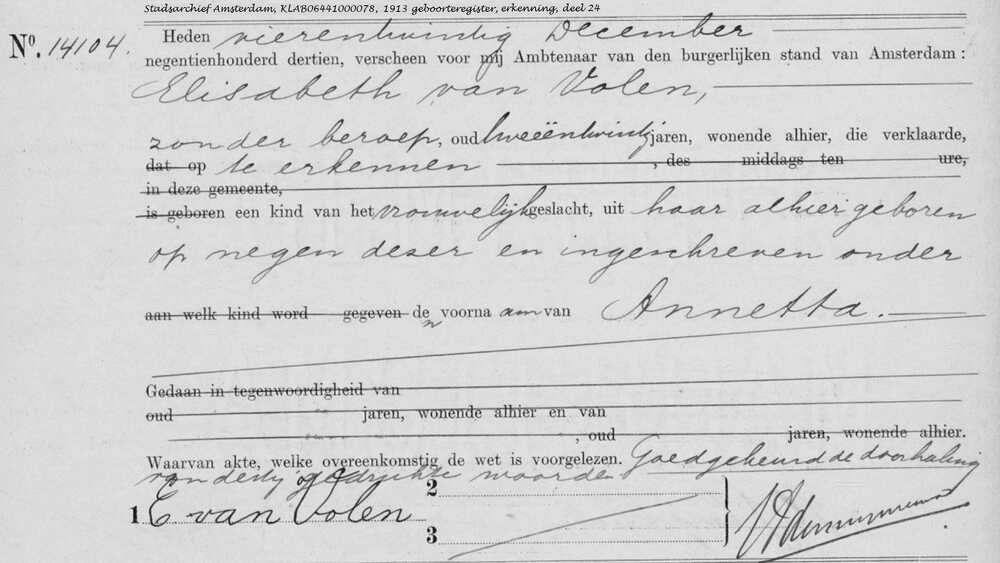 Stadsarchief Amsterdam, KLAB06441000078, 1913 geboorteregister, erkenning, deel 24
No. 14104. Heden vierentwintig December
negentienhonderd dertien, verscheen voor mij Ambtenaar van den burgerlijken stand van Amsterdam:
Elisabeth van Volen,
zonder beroep, oud tweeëntwintig jaren, wonende alhier, die verklaarde,
dat op te erkennen , des middags ten ure,
in deze gemeente,
is geboren een kind van het vrouwelijk geslacht, uit haar alhier geboren
op negen dezer en ingeschreven onder
aan welk kind word gegeven den voornaam van Annetta.
Gedaan in tegenwoordigheid van
oud jaren, wonende alhier en van
, oud jaren, wonende alhier.
Waarvan akte, welke overeenkomstig de wet is voorgelezen. Goedgekeurd de doorhaling
van gedrukte woorden
1 E van Volen
2
3